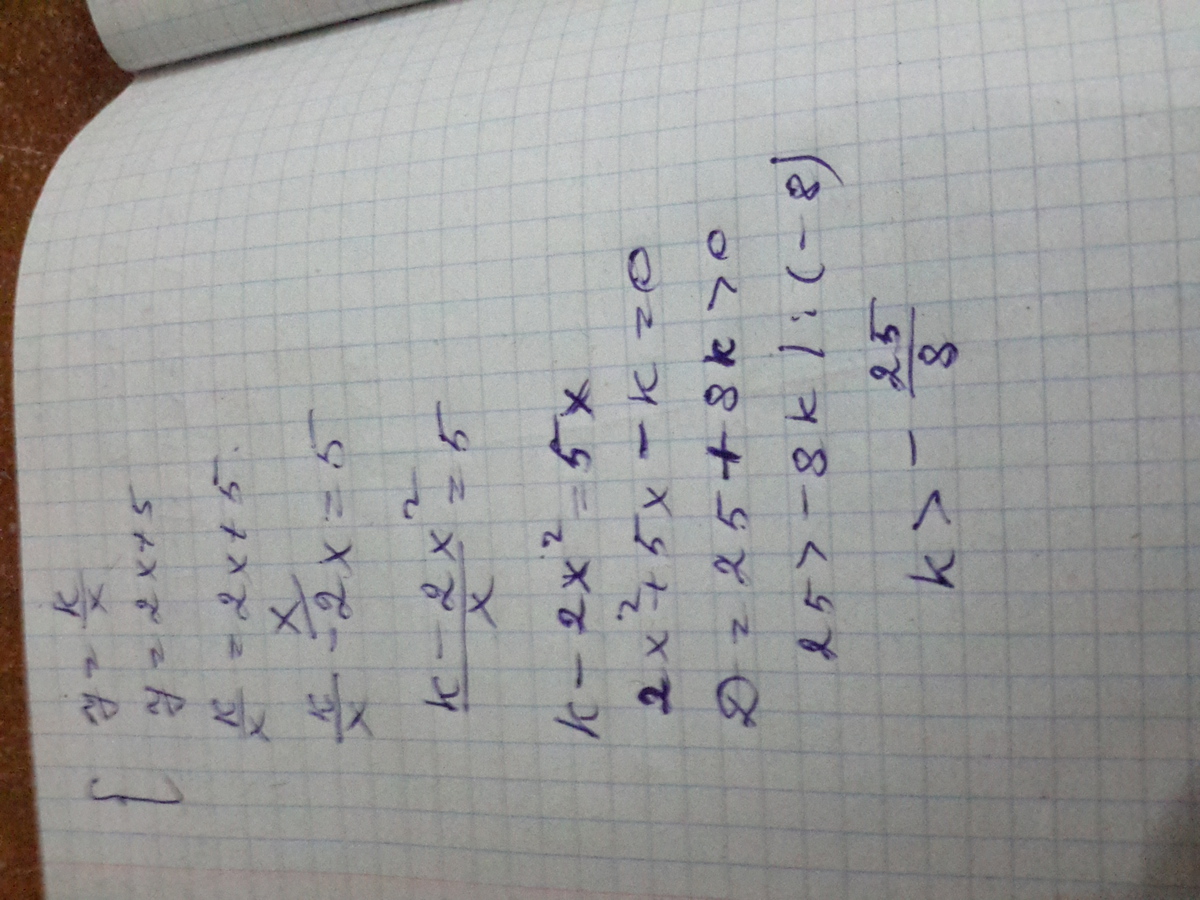 { y = k/x
y = 2x+5
k/x = 2x+5.
k/x - 2x/ˣ = 5
(k-2x²)/x = 5
k-2x² = 5x
2x²+5x-k=0
D = 25+8k>0
25>-8k |:(-8)
k>-25/8